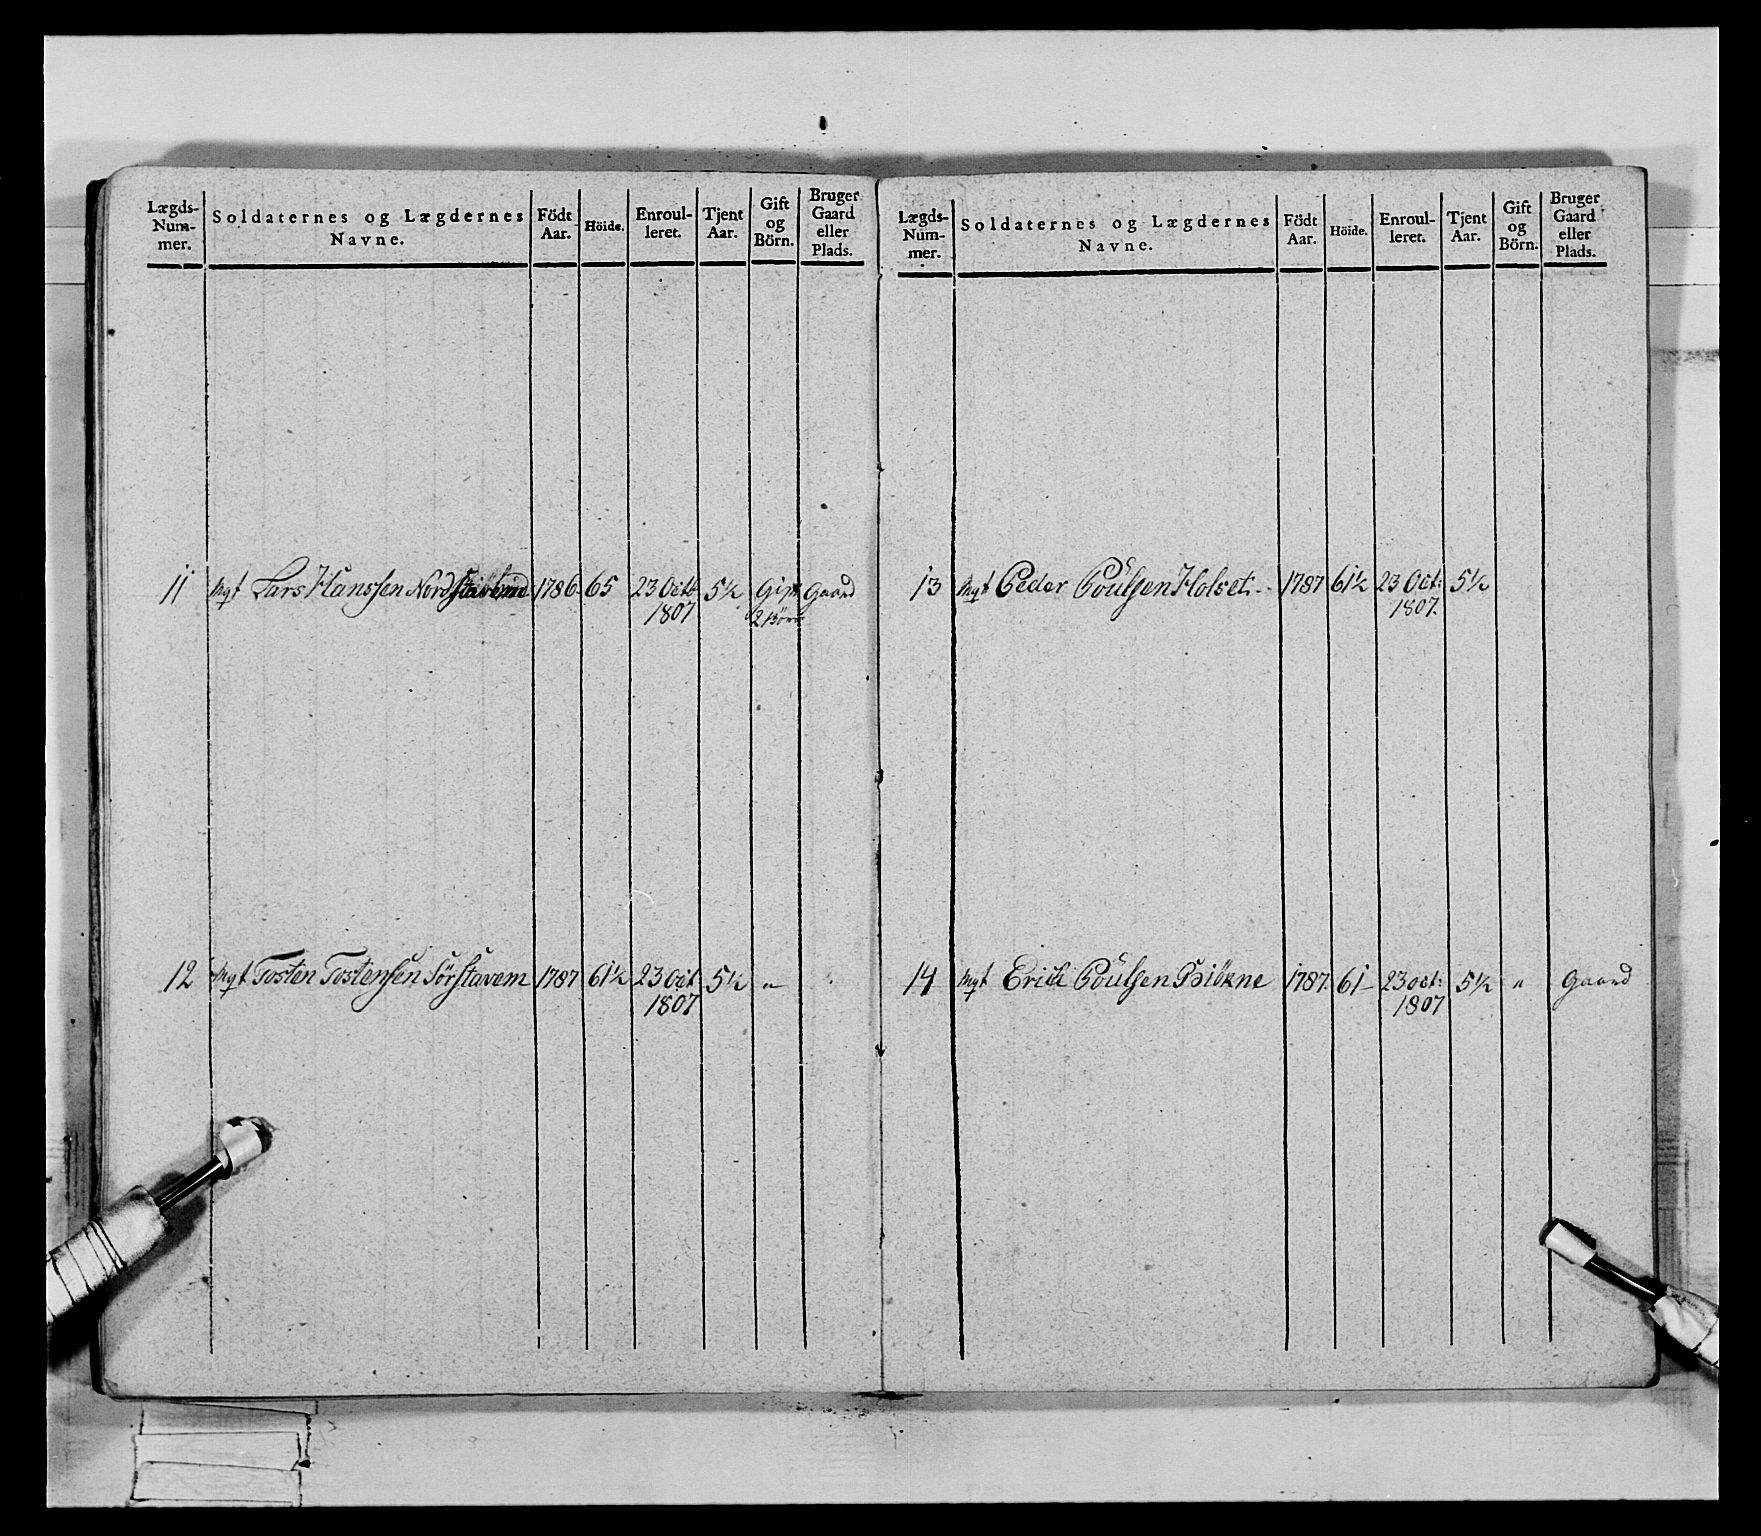 Lægds- Num- mer. Soldaternes og Lægdernes Navne. Födt Aar. Höide. Enroul- leret. Tjent Aar. Gift og Börn. Bruger Gaard eller Plads.
11 Mqt Lars Hanssen Nord 1786 65 23 Octb 5½ Gift Gaard
1807 2 Börn
12 Mqt Tosten Tostensen Sörstavem 1787 61½ 23 Oct 5½ "
1807
Lægds- Num- mer. Soldaternes og Lægdernes Navne. Födt Aar. Höide. Enroul- leret. Tjent Aar. Gift og Börn. Bruger Gaard eller Plads.
13 Mqt Peder Poulsen Holset 1787 61½ 23 Oct: 5½
1807.
14 Mqt Erich Poulsen Biökne 1787. 61 23 oct: 5½ " Gaard
1807